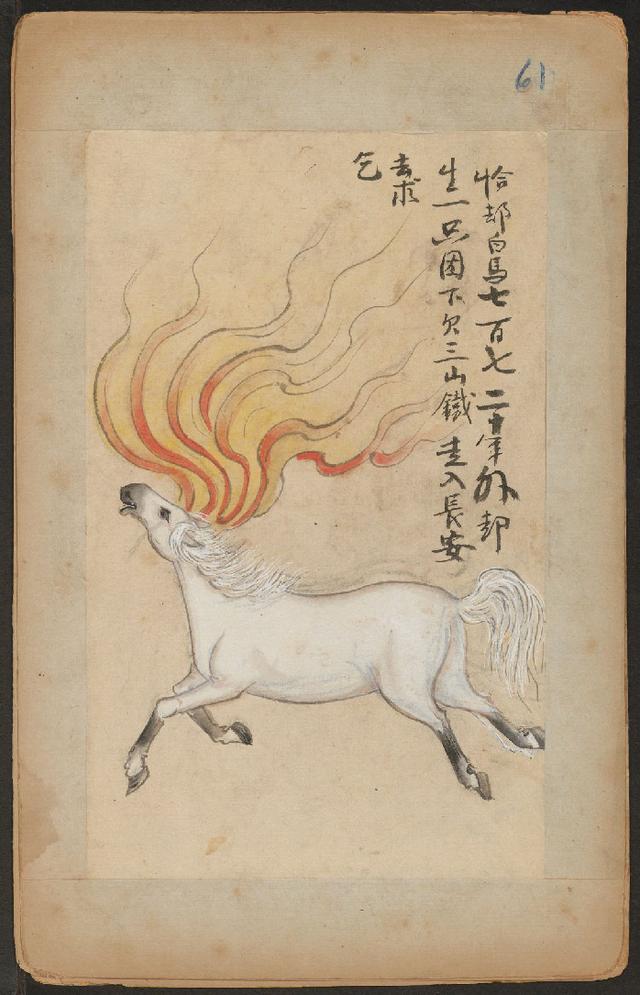 61
恰却白馬七百七二十年外却
生一只因下欠三山鐵走入長安
去求
乞